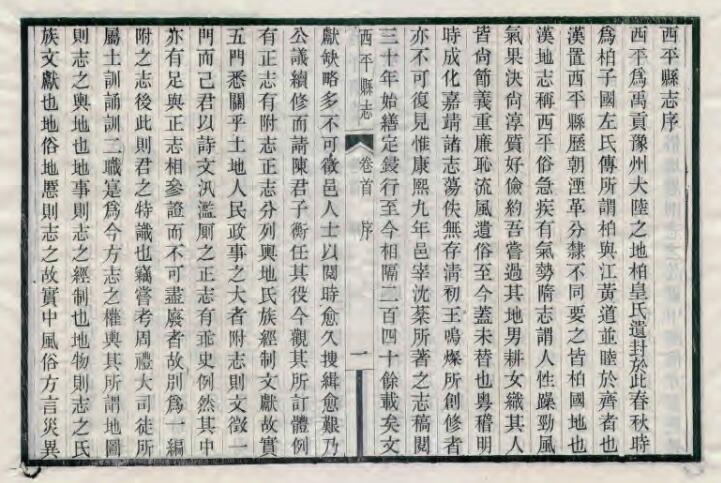 西平縣志序
西平爲禹貢豫州大陸之地柏皇氏遺封於此春秋時
爲柏子國左氏傳所謂柏與江黃道並睦於齊者也
漢置西平縣歷朝湮革分隸不同要之皆柏國地也
漢地志稱西平俗急疾有氣勢隋志謂人性躁勁風
氣果決尙淳質好儉約吾嘗過其地男耕女織其人
皆尙節義重廉恥流風遺俗至今蓋未替也粵稽明
時成化嘉靖諸志蕩佚無存淸初王鳴燦所創修者
亦不可復見惟康熙九年邑宰沈棻所著之志稿閱
三十年始繕定錢行至今相隔二百四十餘載矣文
西平縣志
卷首
序
一
獻缺略多不可徵邑人士以閱時愈久搜緝愈艱乃
公議續修而請陳君子衡任其役今觀其所訂體例
有正志有附志正志分列輿地氏族經制文獻故實
五門悉關乎土地人民政事之大者附志則文徵一
門而已君以詩文汎濫厠之正志有乖史例然其中
亦有足與正志相參證而不可盡廢者故別爲一編
附之志後此則君之特識也竊嘗考周禮大司徒所
屬土訓誦訓二職寔爲今方志之權輿其所謂地圖
則志之輿地也地事則志之經制也地物則志之氏
族文獻也地俗地慝則志之故實中風俗方言災異